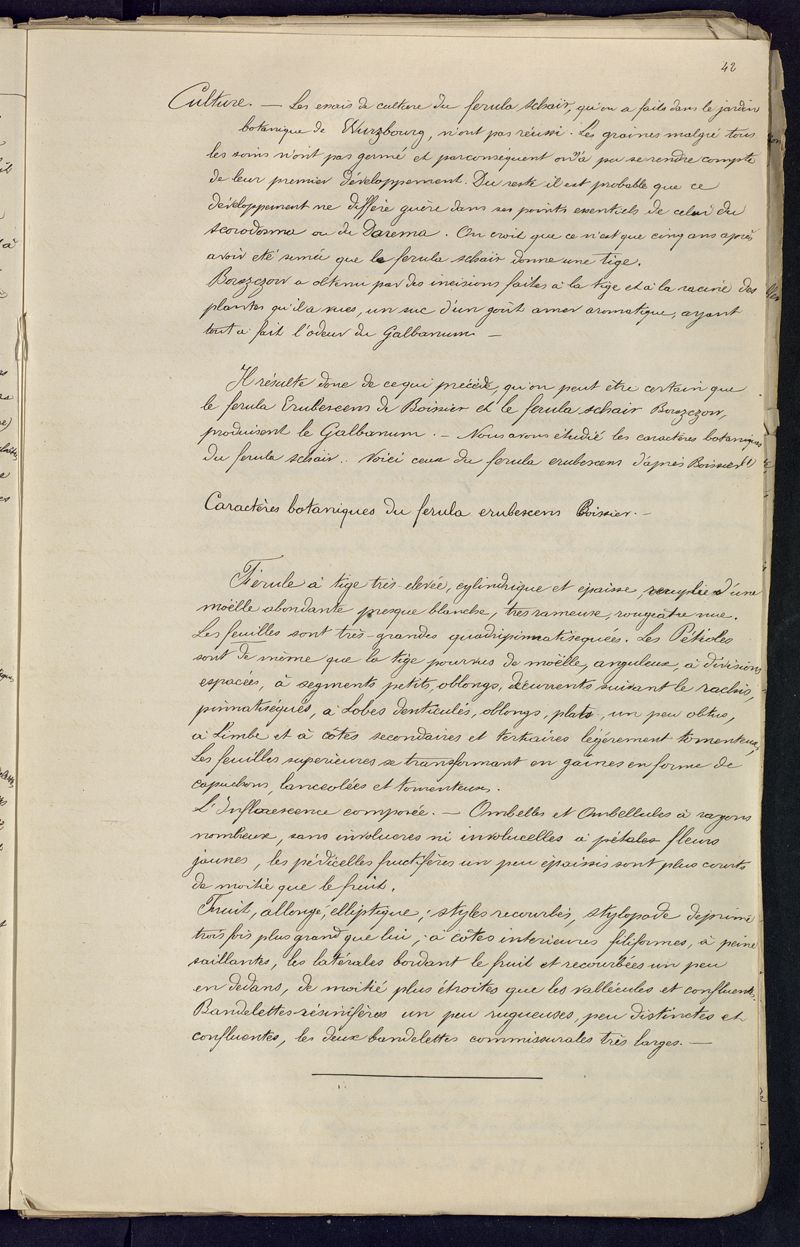 42
Culture. — Les essais de culture du ferula schaïr, qu'on a faits dans le jardin
botanique de Wurzbourg, n'ont pas réussi. Les graines malgré tous
les soins n'ont pas germé et parconséquent on n'a pu se rendre compte
de leur premier développement. Du reste il est probable que ce
développement ne diffère guère dans ses points essentiels de celui du
Scorodosma ou du Dorema. On croit que ce n'est que cinq ans après
avoir été semée que le ferula schaïr donne une tige.
Borszczow a obtenu par des incisions faites à la tige et à la racine des
plantes qu'il a vues, un suc d'un goût amer aromatique, ayant
tout à fait l'odeur du Galbanum —
Il résulte donc de ce qui précède, qu'on peut être certain que
le ferula Erubescens de Boissier et le ferula schair Borszczow,
produisent le Galbanum. — Nous avons étudié les caractères botaniques
du ferula schaïr. Voici ceux du ferula erubescens d'après Boissier
Caractères botaniques du ferula erubescens Boissier. —
Férule à tige très-élevée, cylindrique et épaisse, remplie d'une
moëlle abondante presque blanche, très rameuse, rougeâtre nue.
Les feuilles sont très-grandes quadripinnatiséquées. Les Pétioles
sont de même que la tige pourvus de moëlle, anguleux, à divisions
espacées, à segments petits, oblongs, décurrents suivant le rachis,
pinnatiséqués, à Lobes denticulés, oblongs, plats, un peu obtus,
à Limbe et à côtes secondaires et tertiaires légèrement tomenteux,
Les feuilles supérieures se transformant en gaînes en forme de
capuchons, lancéolées et tomenteuses.
L'Inflorescence composée. — Ombelles et Ombellules à rayons
nombreux, sans involucres ni involucelles à pétales fleurs
jaunes, les pédicelles fructifères un peu épaissis sont plus courts
de moitié que le fruit.
Fruit, allongé, elliptique, styles recourbés, stylopode déprimé
trois fois plus grand que lui, à côtes intérieures filiformes, à peine
saillantes, les latérales bordant le fruit et recourbées un peu
en dedans, de moitié plus étroites que les vallécules et confluentes.
Bandelettes résinifères un peu rugueuses, peu distinctes et
confluentes, les deux bandelettes commissurales très larges. —